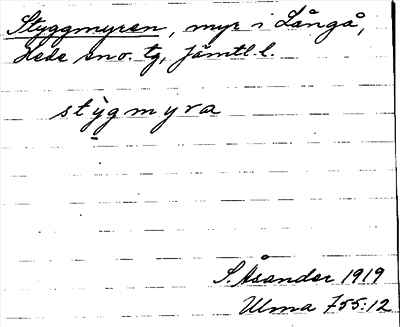 Styggmyren, myr i Långå,
Hede sno. tg, Jämtl. l.
stỳgmyra
S. Åsander 1919
Ulma 755:12